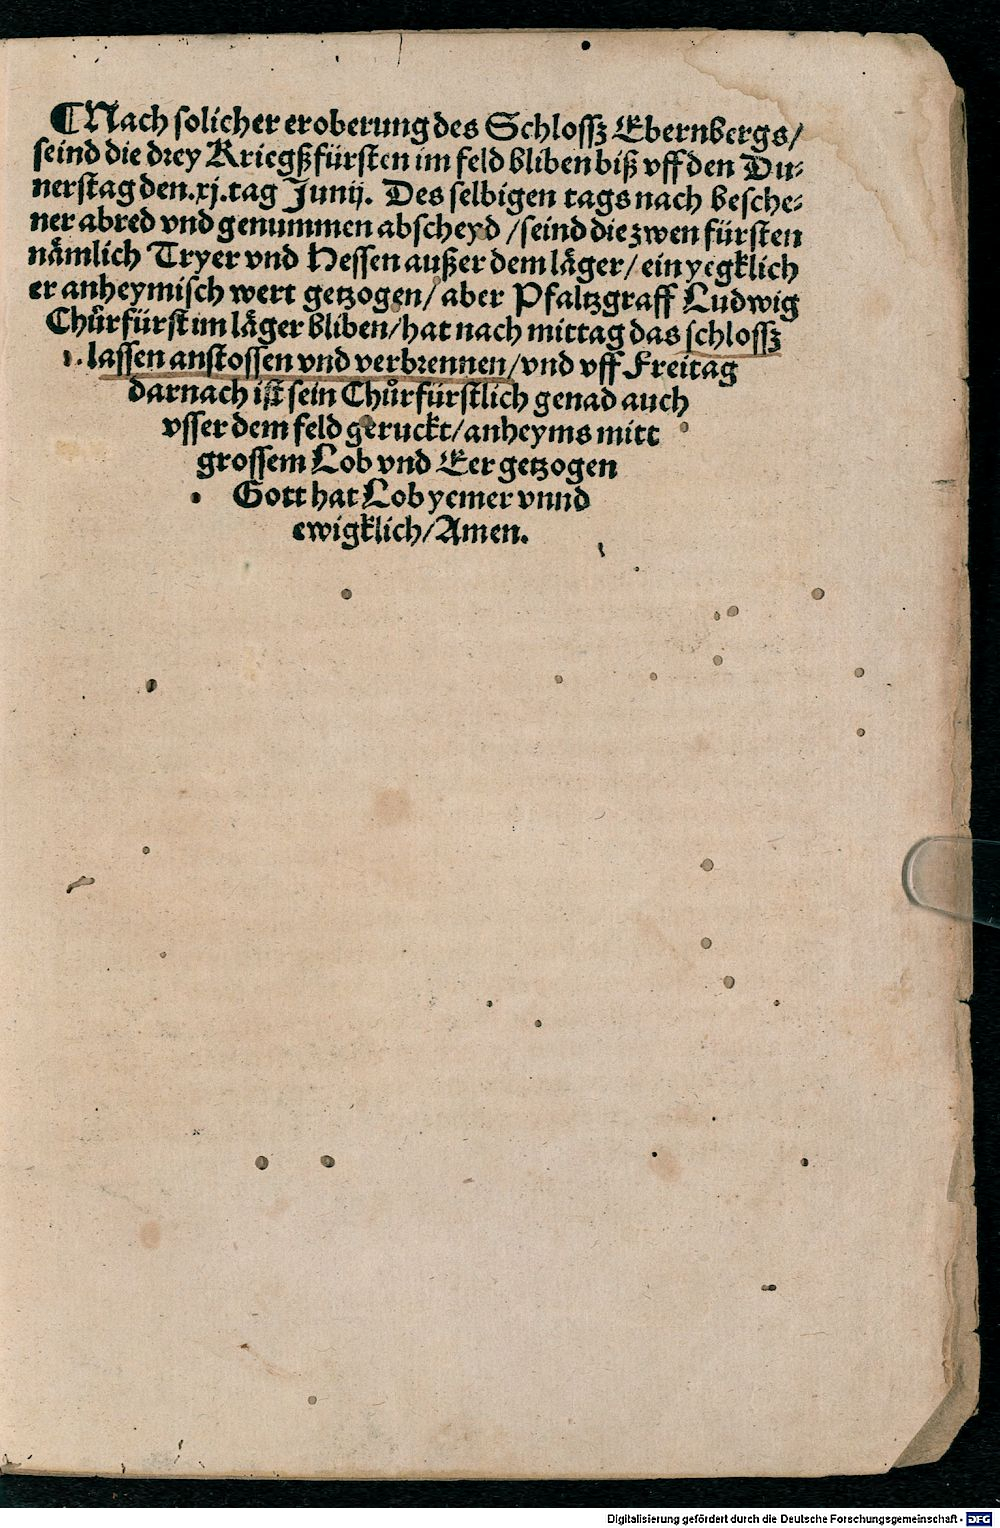 ¶Nach solicher eroberung des Schlossz Ebernbergs/
seind die drey Kriegßfürsten im feld bliben biß vff den Du⸗
nerstag den .xj. tag Junij. Des selbigen tags nach besche⸗
ner abred vnd genummen abscheyd /seind die zwen fürsten
nämlich Tryer vnd Hessen außer dem läger/ ein yegklich
er anheymisch wert getzogen/ aber Pfaltzgraff Ludwig
Chůrfürst im läger bliben/hat nach mittag das schlossz
lassen anstossen vnd verbrennen/vnd vff Freitag
darnach ist sein Chůrfürstlich genad auch
vsser dem feld geruckt/anheyms mitt
grossem Lob vnd Eer getzogen
Gott hat Lob yemer vnnd
ewigklich/Amen.
Digitalisierung gefördert durch die Deutsche Forschungsgemeinschaft - DFG